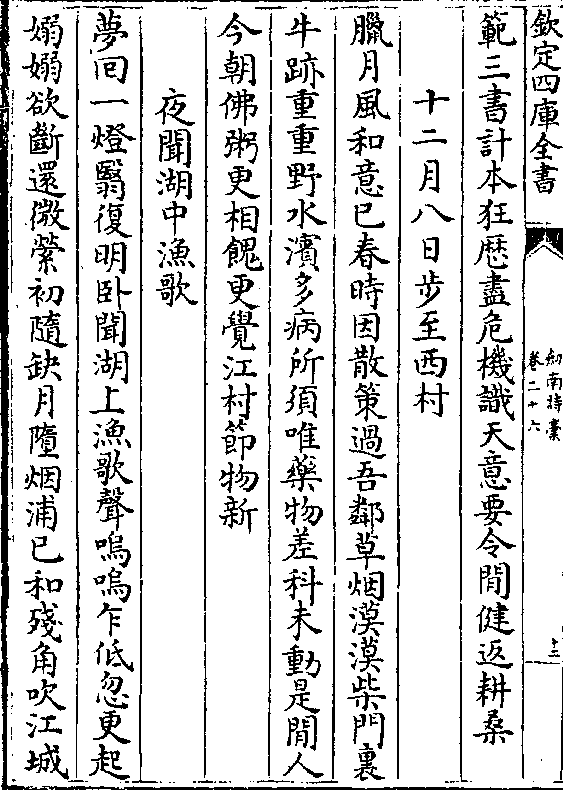 欽定四庫全書
劍南詩稾
卷二十六
十三
範三書計本狂歴盡危機識天意要令閒健返耕桑
十二月八日步至西村
臘月風和意已春時因散策過吾鄰草烟漠漠柴門裏
牛跡重重野水濱多病所須唯藥物差科未動是閒人
今朝佛粥更相餽更覺江村節物新
夜聞湖中漁歌
夢回一燈翳復明卧聞湖上漁歌聲嗚嗚乍低忽更起
嫋嫋欲斷還微縈初隨缺月墮烟浦已和殘角吹江城